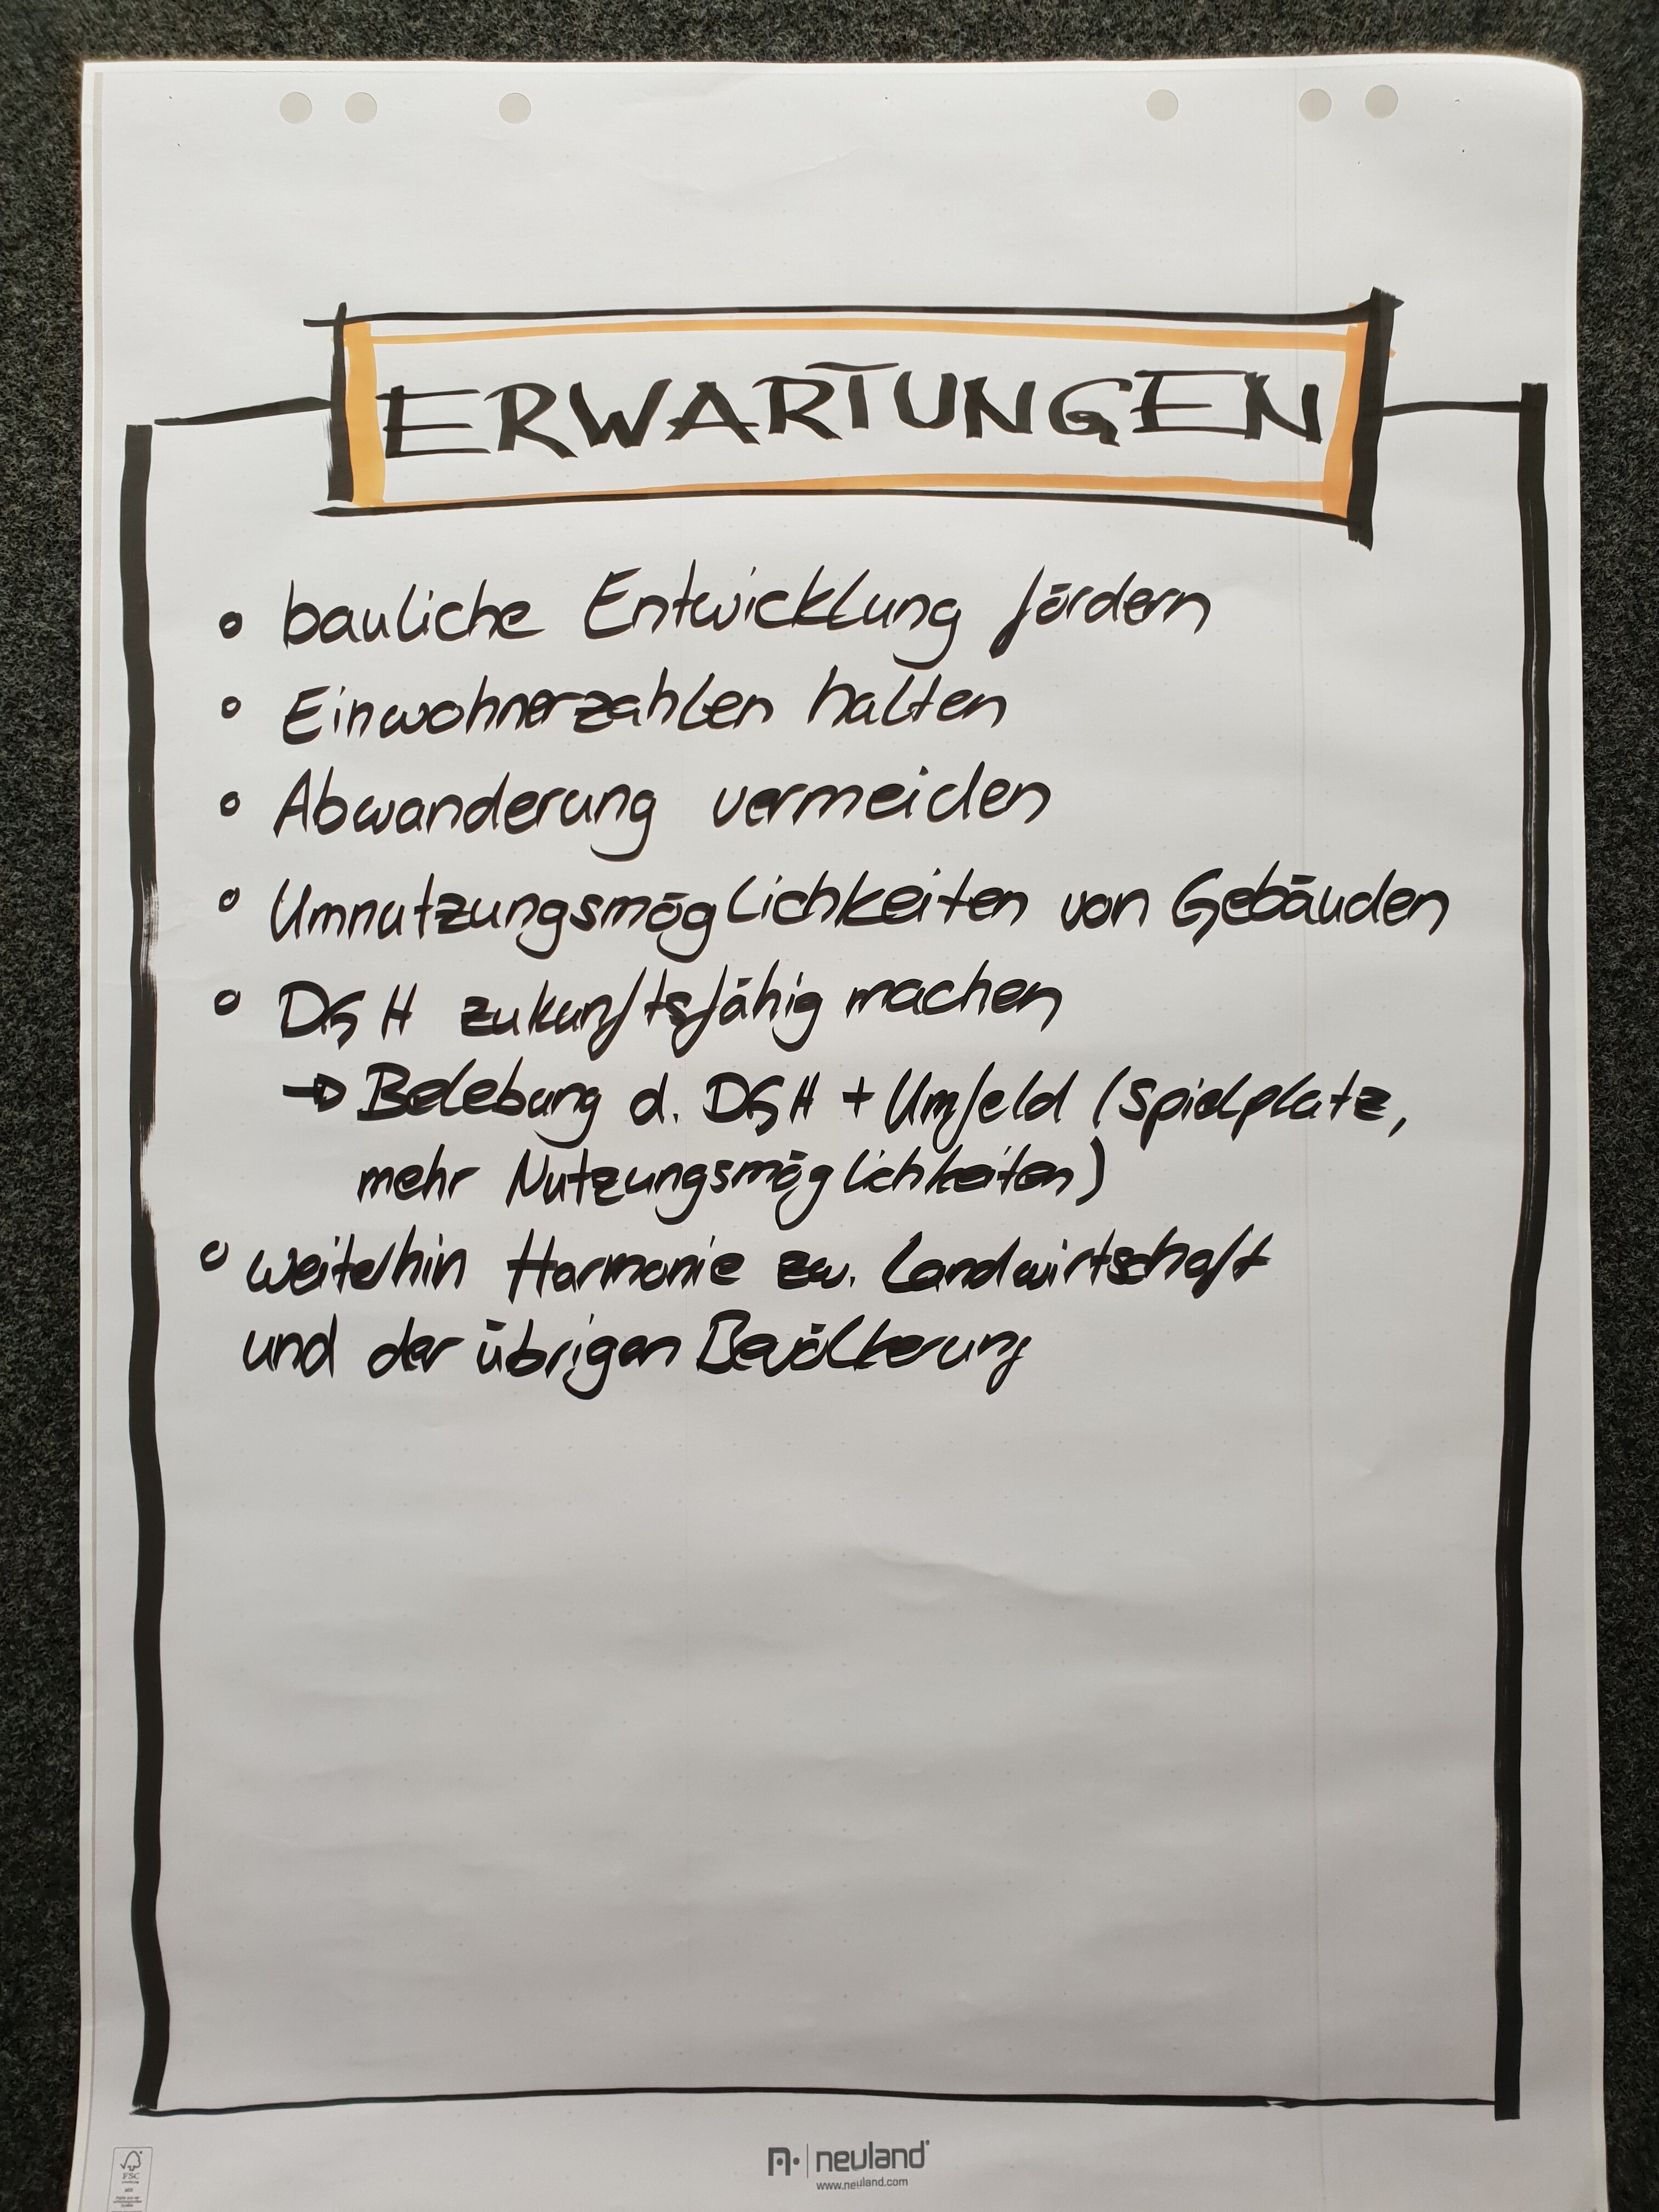 ERWARTUNGEN
° bauliche Entwicklung fördern
° Einwohnerzahlen halten
° Abwanderung vermeiden
° Umnutzungsmöglichkeiten von Gebäuden
° DGH zukunftsfähig machen
→ Belebung d. DGH + Umfeld (Spielplatz,
mehr Nutzungsmöglichkeiten)
° weiterhin Harmonie zw. Landwirtschaft
und der übrigen Bevölkerung
neuland
www.neuland.com
FSC